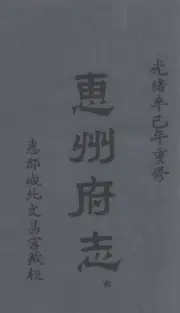 光緒辛巳年重修
惠州府志
惠郡城北文昌宮鐫板